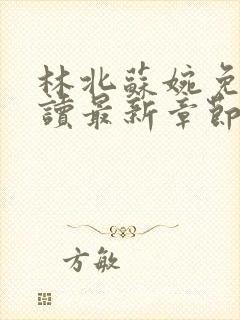 林北蘇婉免
讀最新章節
方敏